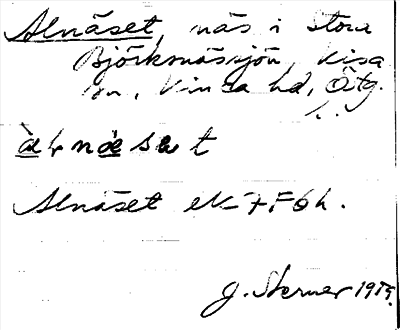 Alnäset, näs i Stora
Björknässjön, Kisa
sn, Kinda hd, Ötg.
l.
Alnäset ek 7 F 6 h.
J. Sterner 1975.